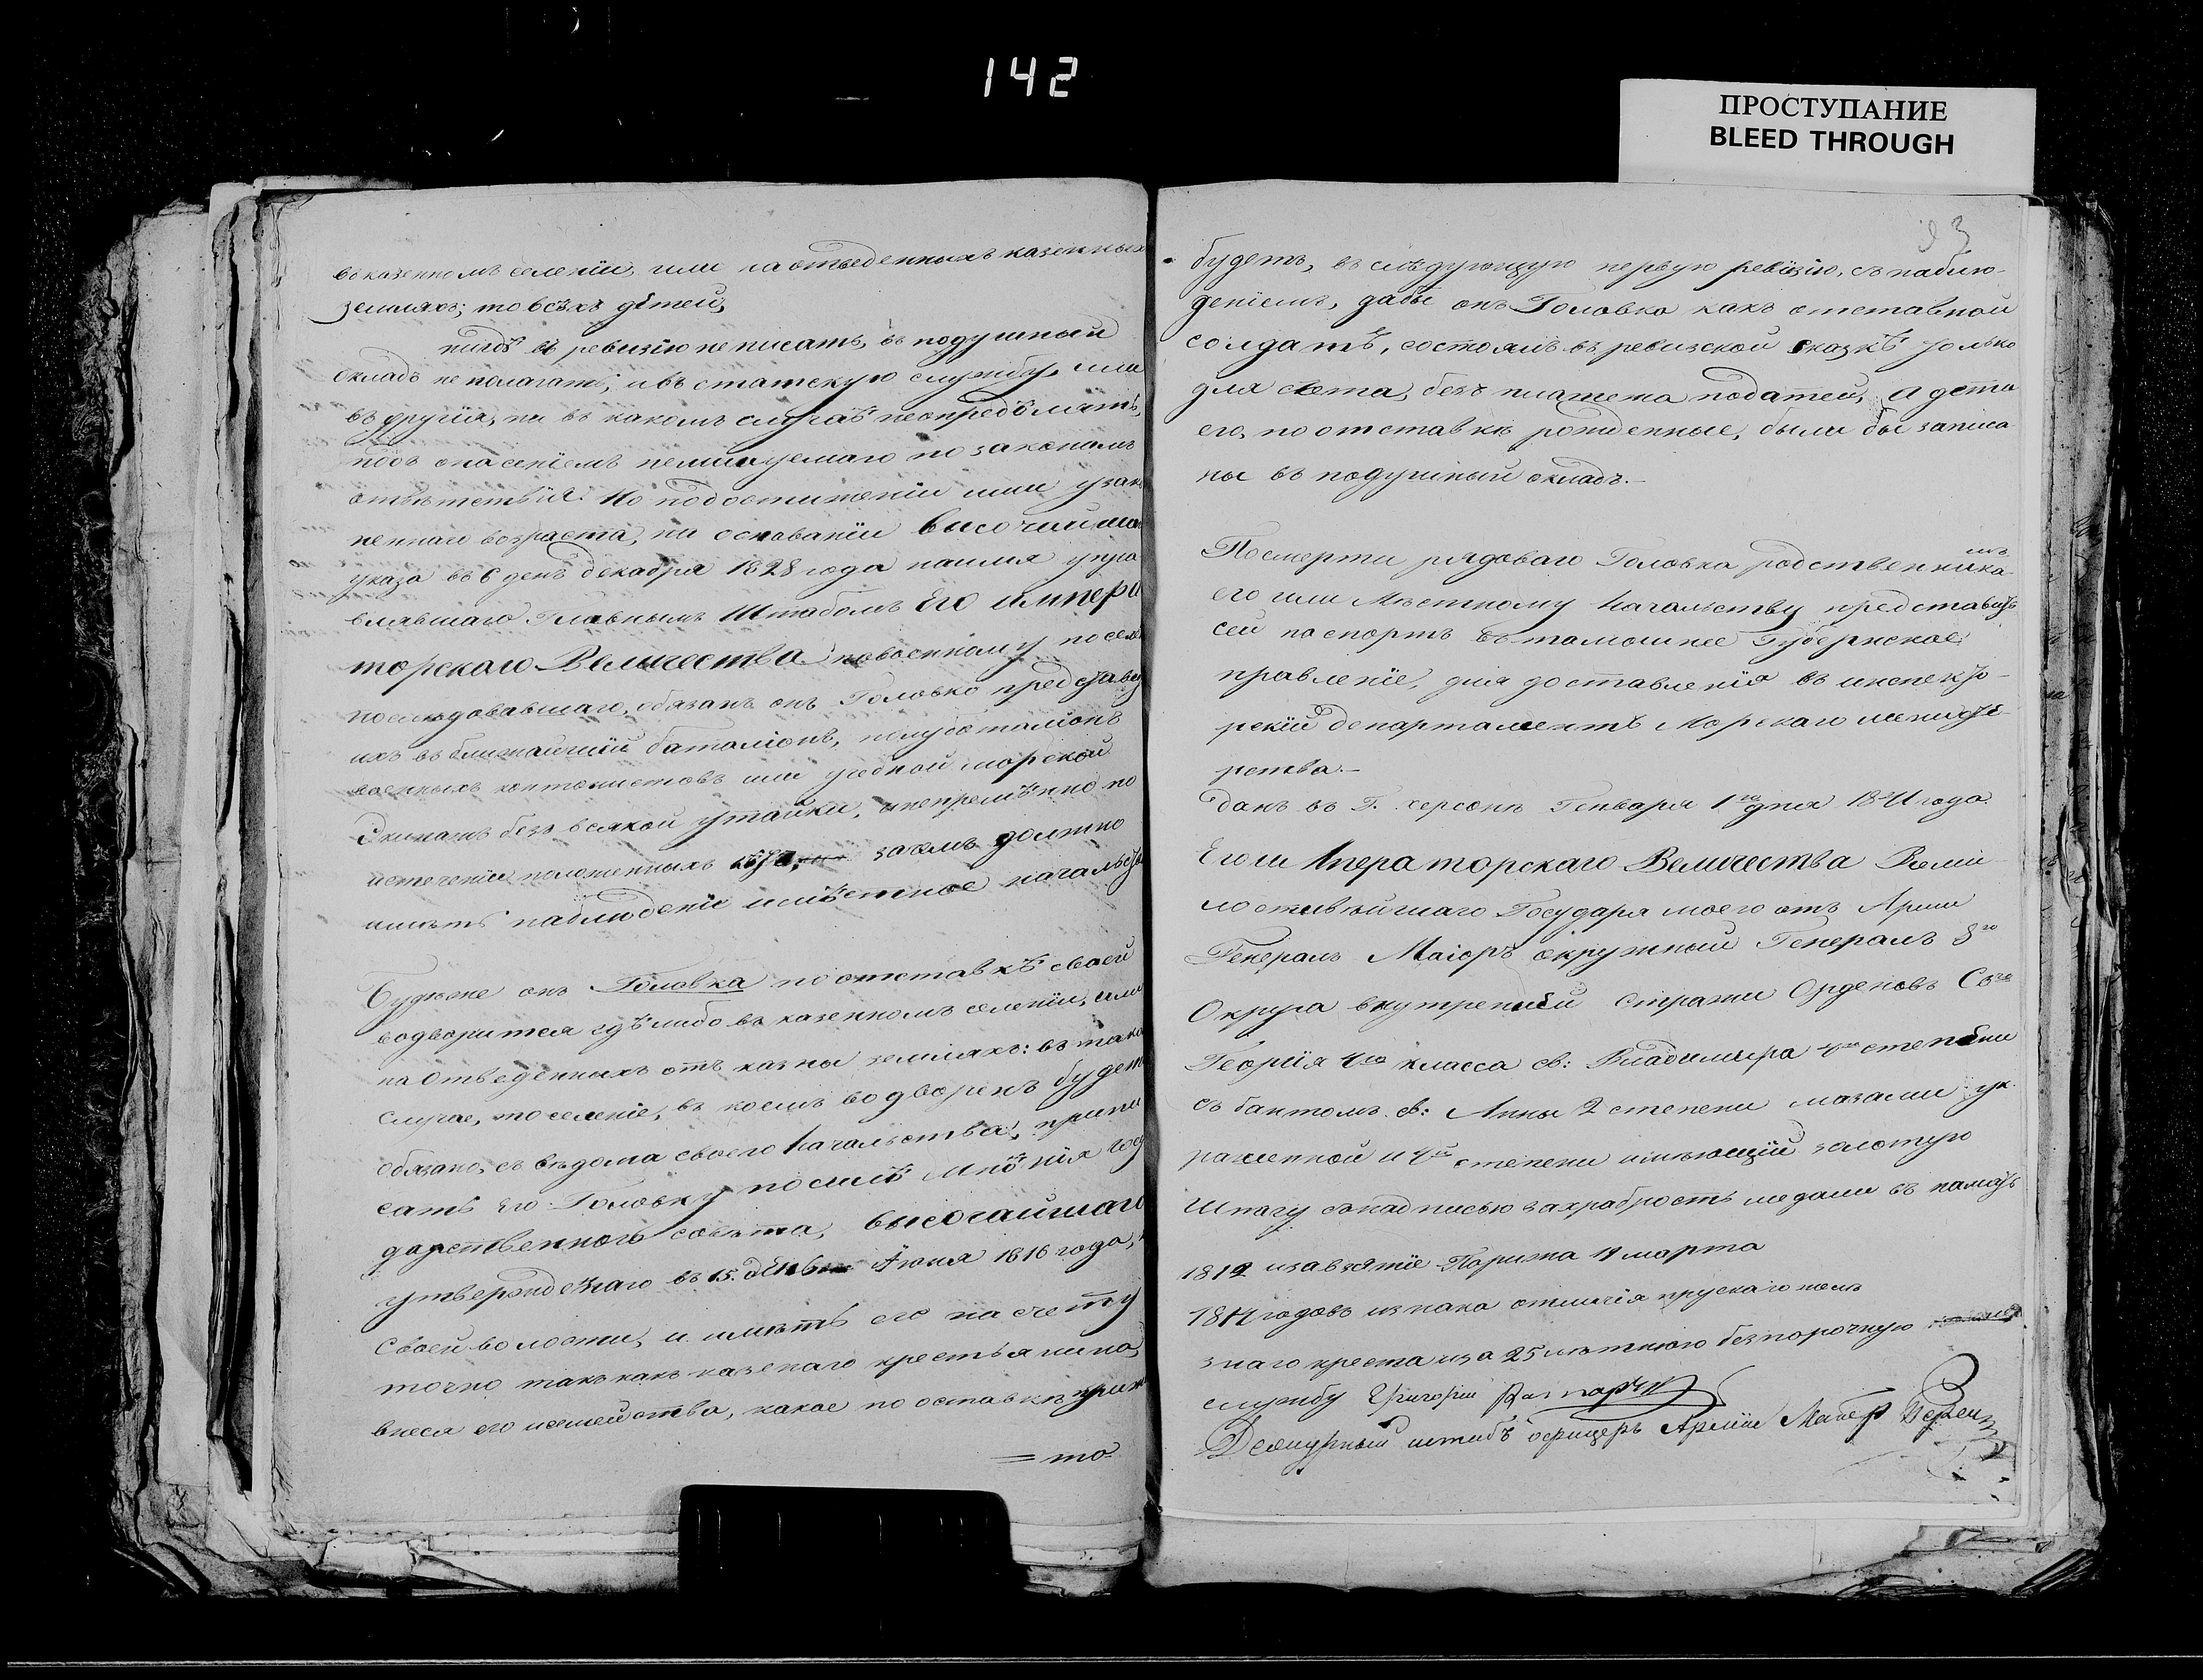 142
ПРОСТУПАНИЕ
BLEED THROUGH
въ казенномъ селенïи, или на отведенныхъ казенных
земляхъ; то всѣхъ дѣтей,
нигдѣ въ ревизïю не писать, въ подушный
окладъ не полагать, и въ статскую службу, или
въ другïя, ни въ какомъ случаѣ неопредѣлять,
подъ опасенïемъ неминуемаго по законамъ
отвѣтствïя. По подостиженïи ими узако
неннаго возраста, на основанïи Высочайшаго
указа въ 6 день декабря 1828 года на имя упра
влявшаго Главнымъ Штабомъ Его Импера
торскаго Величества повоенному посел
последовавшаго, обязанъ онъ Головко представ
ихъ въ ближайшïй баталïонъ, полубаталïонъ
военныхъ кантонистовъ или учебной морской
Экипажъ безъ всякой утайки, и непремѣнно по
истеченïи положенныхъ зачемъ должно
иметь наблюденïе и мѣстное начальст
Будеже онъ Головка по отставкѣ своей
водворится гдѣ либо въ казенномъ селенïи, или
на отведенныхъ отъ казны земляхъ: въ тако
случае, то селенïе, въ коемъ водворенъ будет
обязано, съ ведома своего Начальства, припи
сать Его Головку по силѣ Мнѣнïя Госу
дарственнаго совета, высочайшаго
утвержденнаго въ 15. день Июня 1816 года,
своей волости, и иметь его на счету
точно такъ какъ казенаго крестьянина,
внеся его и семейства, какое по оставкѣ приж
= то
93
будетъ, въ следующую первую ревизïю, съ наблю-
денïемъ, дабы онъ Головка какъ отставной
солдатъ, состоялъ въ ревизской сказкѣ только
для счета, безъ платежа податей, а дети
его, по отставкѣ рожденные, были бы записа
ны въ подушный окладъ.-
По смерти рядоваго Головка родственникамъ
его или Местному Начальству представить
сей паспортъ въ тамошнее Губернское
правленïе, для доставленïя въ инспекто-
рскïй департаментъ Морскаго минист
рства.-
данъ въ Г. херсонѣ Генваря 1го дня 1841 года.
Его Императорскаго Величества Всеми
лостивѣйшаго Государя моего отъ Армïи
Генералъ Маïоръ окружный Генералъ 8го
Округа внутренней стражи Орденовъ Свго
Георгïя 4го класса св: Владимира 4й степени
съ бантомъ св: Анны 2 степени алмазами ук
рашенной и 4й степени имеющïй золотую
Шпагу съ надписью захрабрость медали въ память
1812 и за взятïе Парижа 19 марта
1814 годовъ и знака отличïя прускаго желѣ
знаго креста и за 25 летнюю безпорочную
службу Григорïй
Дежурный штабъ офицеръ Армïи Маïоръ